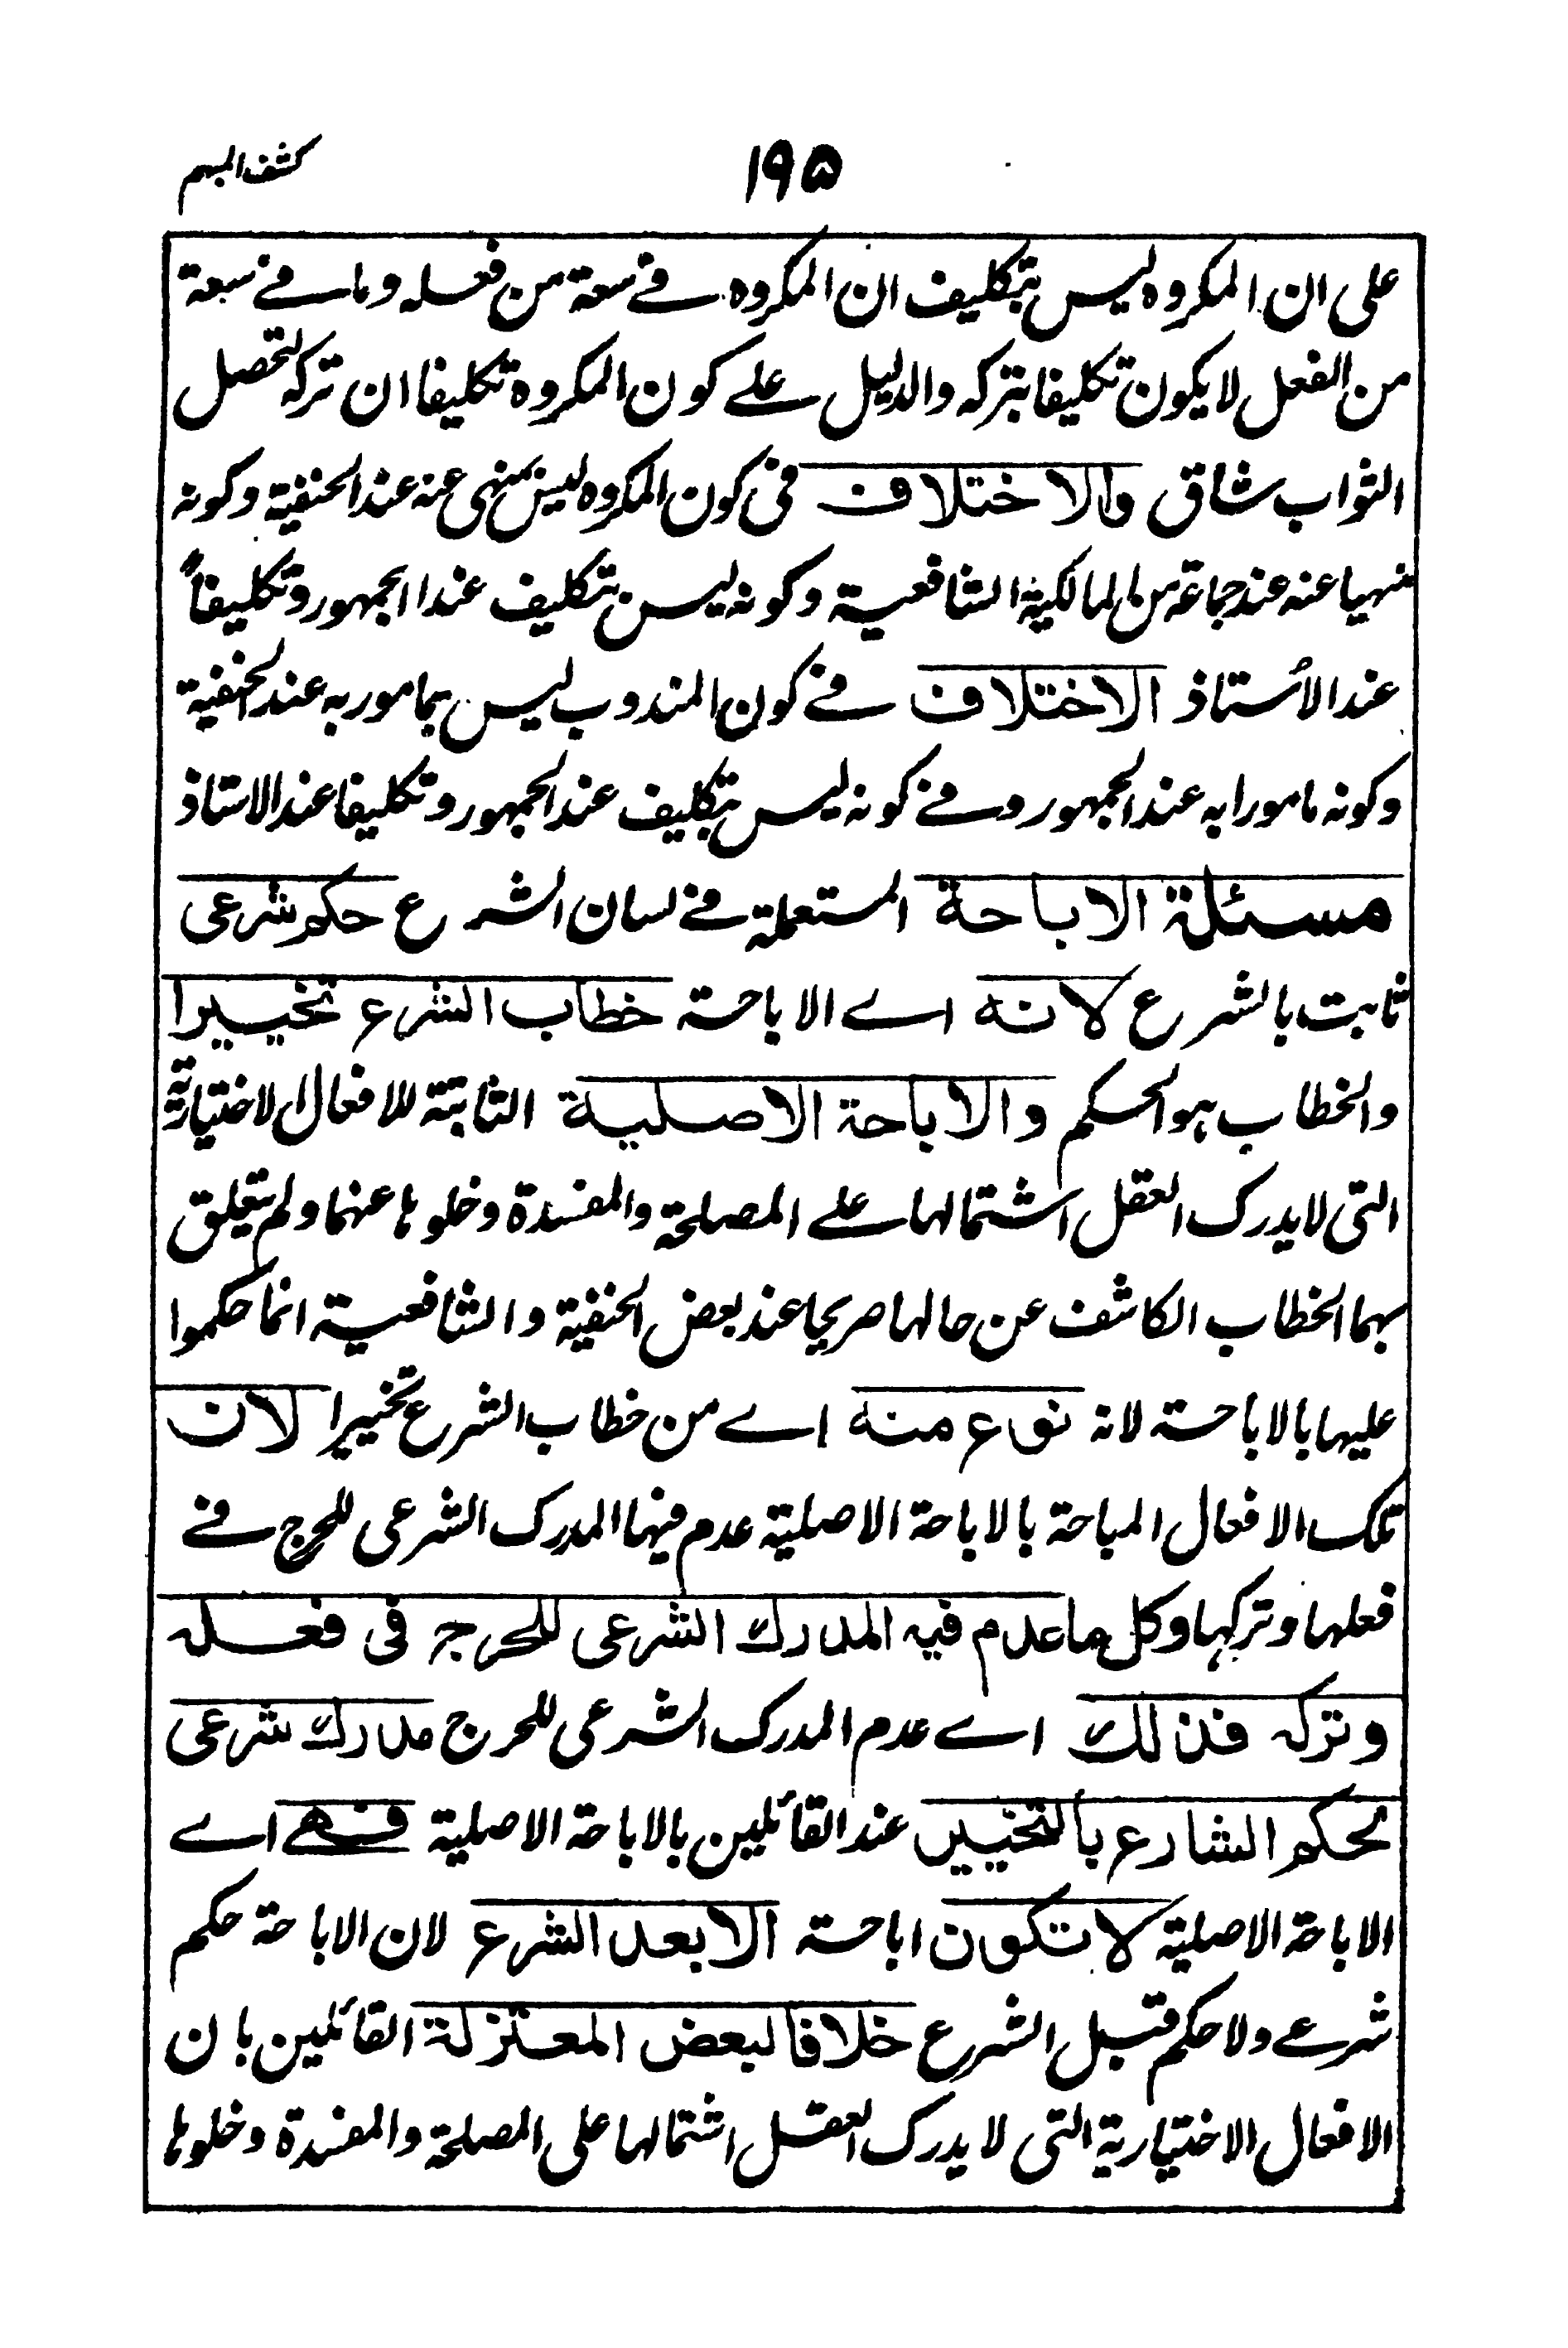 كشف المبهم
١٩٥
على ان المكروه ليس بتكليف ان المكروه في سعة من فعله وما في سعة
من الفعل لا يكون تكليفا بتركه والدليل على كون المكروه تكليفا ان تركه لتحصل
الثواب شاق والاختلاف في كون المكروه ليس بمنهى عنه عند الحنفية وكونه
منهيا عنه عند جماعة من المالكية الشافعية وكونه ليس بتكليف عند الجمهور وتكليفاً
عند الأستاذ الاختلاف في كون المندوب ليس بمامور به عند الحنفية
وكونه مامورا به عند الجمهور وفي كونه ليس بتكليف عند الجمهور وتكليفا عند الاستاذ
مسئلة الاباحة المستعملة في لسان الشرع حكم شرعى
ثابت بالشرع لانه اے الاباحة خطاب الشرع تخييرا
والخطاب هو الحكم والاباحة الاصلية الثابتة للافعال الاختيارية
التى لا يدرك العقل اشتمالها على المصلحة والمفسدة وخلوها عنهما ولم يتعلق
بهما الخطاب الكاشف عن حالها صريحا عند بعض الحنفية والشافعية انما حكموا
عليها بالاباحة لانه نوع منه اے من خطاب الشرع تخييرا لان
تلك الافعال المباحة بالاباحة الاصلية عدم فيها المدرك الشرعى للحرج في
فعلها وتركها وكل ما عدم فيه المدرك الشرعى للحرج فى فعله
وتركه فذلك اے عدم المدرك الشرعى للحرج مدرك شرعى
لحكم الشارع بالتخيير عند القائلين بالاباحة الاصلية فهى اے
الاباحة الاصلية لا تكون اباحة الا بعد الشرع لان الاباحة حكم
شرعے ولا حكم قبل الشرع خلافا لبعض المعتزلة القائلين بان
الافعال الاختيارية التى لا يدرك العقل اشتمالها على المصلحة والمفسدة وخلوها